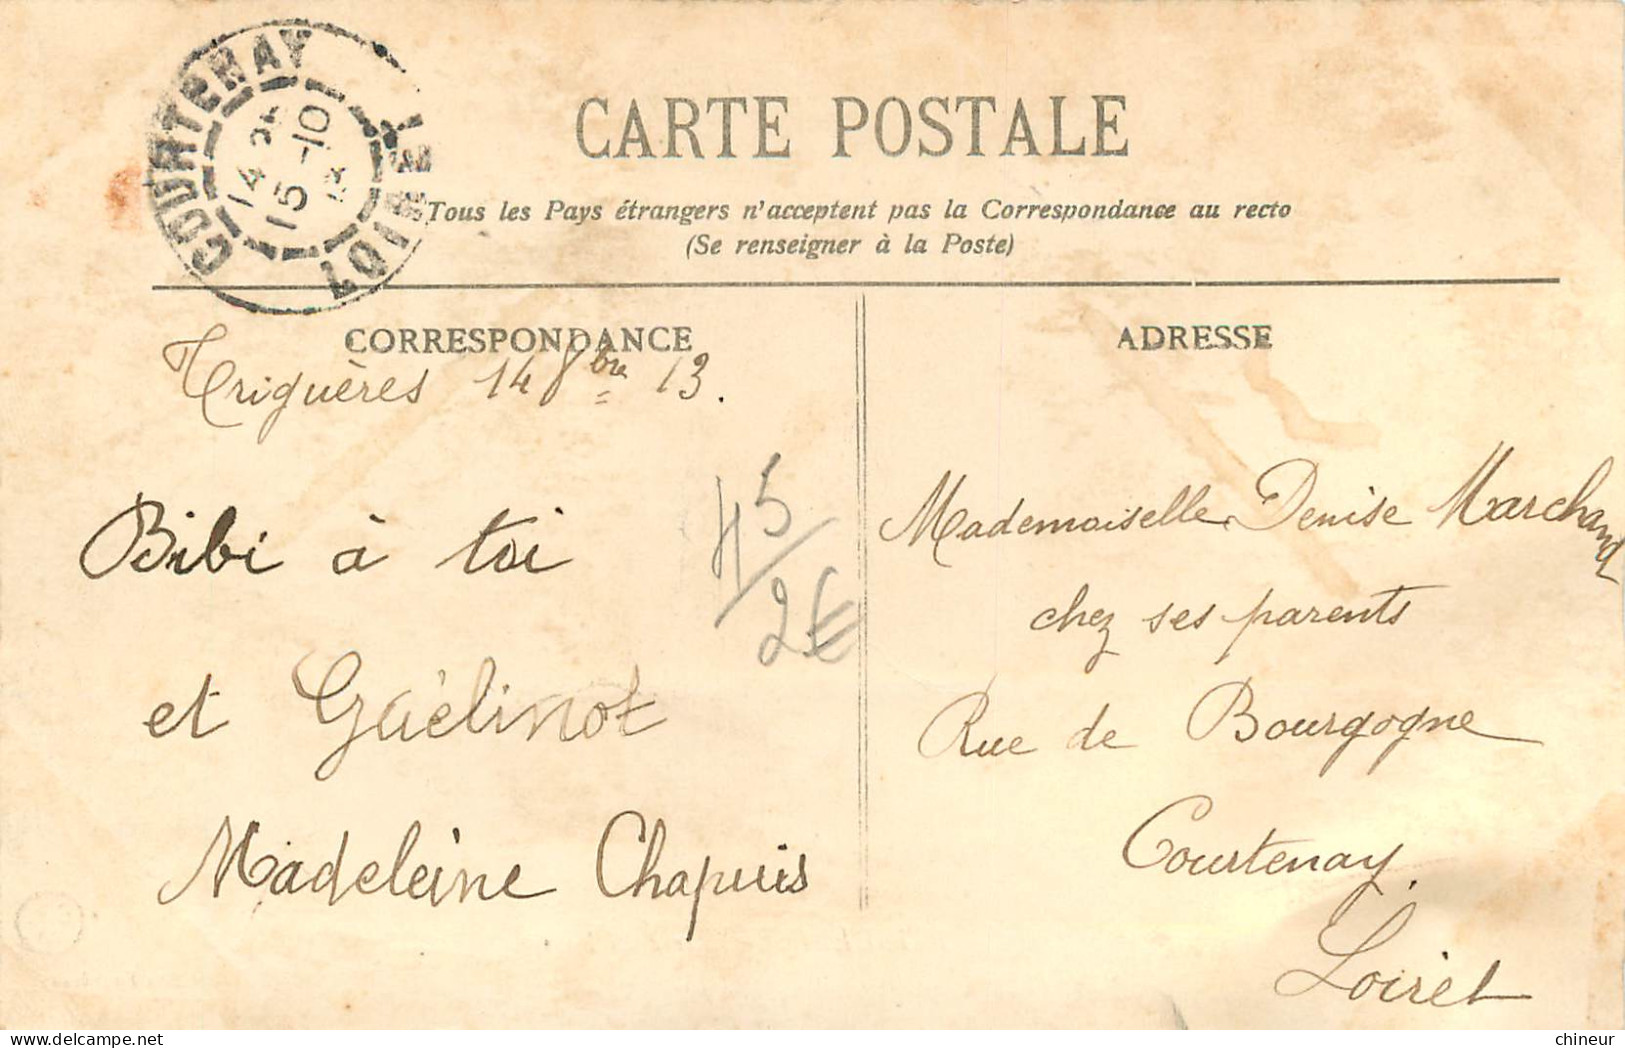 COURTENAY
LOIRET
15-10
CARTE POSTALE
Tous les Pays étrangers n'acceptent pas la Correspondance au recto
(Se renseigner à la Poste)
CORRESPONDANCE
Triguères 14 8bre 13.
Bibi à toi
et Guélinot
Madeleine Chapuis
45
2€
ADRESSE
Mademoiselle Denise Marchand
chez ses parents
Rue de Bourgogne
Courtenay.
Loiret
delcampe.net
chineur